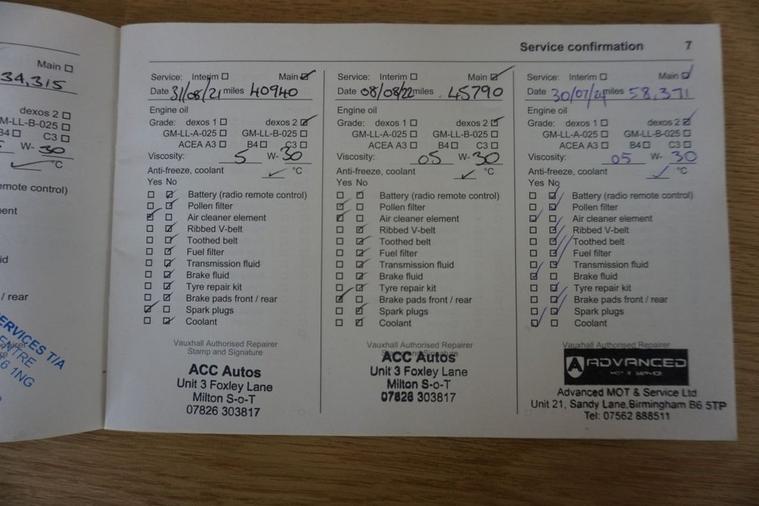 Service confirmation 7
Main
34,315
dexos 2
M-LL-B-025
B4 C3
W- 30
°C
emote control)
ent
id
/ rear
ERVICES T/A
ENTRE
6 1NG
Service: Interim Main
Date 31/08/21 miles 40940
Engine oil
Grade: dexos 1 dexos 2
GM-LL-A-025 GM-LL-B-025
ACEA A3 B4 C3
Viscosity: 5 W- 30
Anti-freeze, coolant °C
Yes No
Battery (radio remote control)
Pollen filter
Air cleaner element
Ribbed V-belt
Toothed belt
Fuel filter
Transmission fluid
Brake fluid
Tyre repair kit
Brake pads front / rear
Spark plugs
Coolant
Vauxhall Authorised Repairer
Stamp and Signature
ACC Autos
Unit 3 Foxley Lane
Milton S-o-T
07826 303817
Service: Interim Main
Date 08/08/22 miles 45790
Engine oil
Grade: dexos 1 dexos 2
GM-LL-A-025 GM-LL-B-025
ACEA A3 B4 C3
Viscosity: 05 W- 30
Anti-freeze, coolant °C
Yes No
Battery (radio remote control)
Pollen filter
Air cleaner element
Ribbed V-belt
Toothed belt
Fuel filter
Transmission fluid
Brake fluid
Tyre repair kit
Brake pads front / rear
Spark plugs
Coolant
Vauxhall Authorised Repairer
Stamp and Signature
ACC Autos
Unit 3 Foxley Lane
Milton S-o-T
07826 303817
Service: Interim Main
Date 30/07/24 miles 58,371
Engine oil
Grade: dexos 1 dexos 2
GM-LL-A-025 GM-LL-B-025
ACEA A3 B4 C3
Viscosity: 05 W- 30
Anti-freeze, coolant °C
Yes No
Battery (radio remote control)
Pollen filter
Air cleaner element
Ribbed V-belt
Toothed belt
Fuel filter
Transmission fluid
Brake fluid
Tyre repair kit
Brake pads front / rear
Spark plugs
Coolant
Vauxhall Authorised Repairer
ADVANCED
MOT & SERVICE
Advanced MOT & Service Ltd
Unit 21, Sandy Lane, Birmingham B6 5TP
Tel: 07562 888511